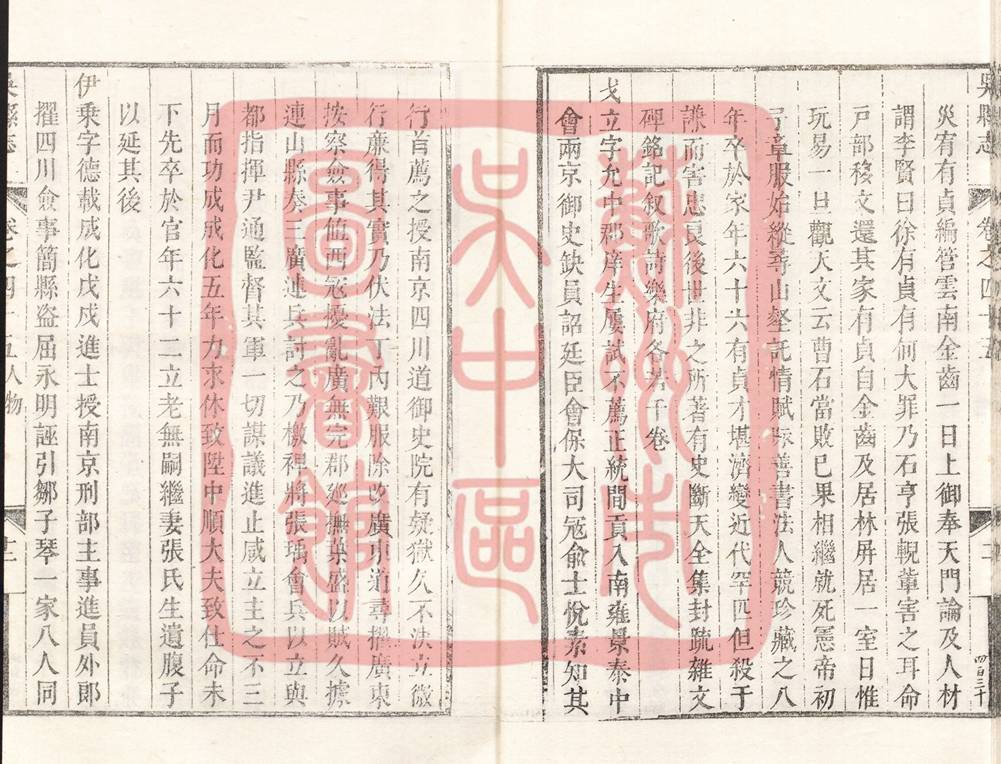 吳縣志
卷之四十五
四百三十
災宥有貞編管雲南金齒一日上御奉天門論及人材
謂李賢曰徐有貞有何大罪乃石亨張輗輩害之耳命
戸部移文還其家有貞自金齒及居林屏居一室日惟
玩易一旦觀天文云曹石當敗已果相繼就死憲帝初
予章服始縱尋山壑託情賦詠善書法人競珍藏之八
年卒於家年六十六有貞才堪濟變近代罕匹但殺于
謙而害忠良後世非之所著有史斷天全集封疏雜文
碑銘記叙歌詩樂府各若干卷
戈立字允中郡庠生屢試不薦正統間貢入南雍景泰中
會兩京御史缺員詔廷臣會保大司宼俞士悅素知其
行首薦之授南京四川道御史院有疑獄久不決立微
行廉得其實乃伏法丁內艱服除改廣東道尋擢廣東
按察僉事値西宼擾亂廣無完郡廵撫葉盛以賊久據
連山縣奏三廣連兵討之乃檄裨將張瑀會兵以立與
都指揮尹通監督其軍一切謀議進止咸立主之不三
月而功成成化五年力求休致陞中順大夫致仕命未
下先卒於官年六十二立老無嗣繼妻張氏生遺腹子
以延其後
伊乘字德載成化戊戌進士授南京刑部主事進員外郎
擢四川僉事簡縣盜屈永明誣引鄒子琴一家八人同
吳縣志
卷之四十五
人物
蘇州市
吳中區
圖書館